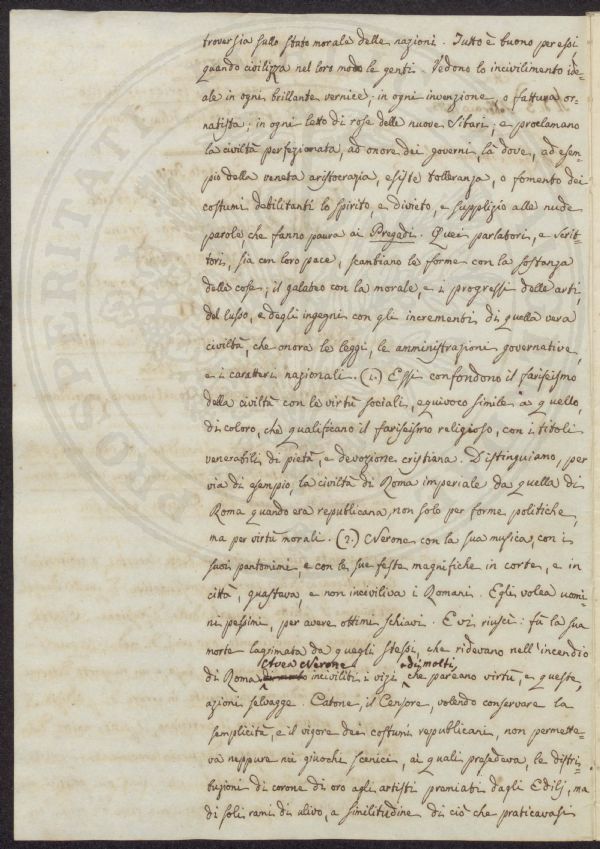 troversia sullo stato morale delle nazioni. Tutto è buono per essi
quando civilizza nel loro modo le genti. Vedono lo incivilimento ide-
ale in ogni brillante vernice; in ogni invenzione, o fattura or-
natista; in ogni letto di rose delle nuove Sibari; e proclamano
la civiltà perfezionata, ad onore dei governi, là dove, ad esem-
pio della veneta aristocrazia, esiste tolleranza, o fomento dei
costumi debilitanti lo spirito, e divieto, e supplizio alle nude
parole, che fanno paura ai Pregadi. Quei parlatori, e scrit-
tori, sia con loro pace, scambiano le forme con la sostanza
delle cose; il galateo con la morale, e i progressi delle arti,
del lusso, e degli ingegni con gli incrementi di quella vera
civiltà, che onora le leggi, le amministrazioni governative,
e i caratteri nazionali. (1.) Essi confondono il fariseismo
della civiltà con le virtù sociali, equivoco simile a quello
di coloro, che qualificano il fariseismo religioso, con i titoli
venerabili di pietà, e devozione cristiana. Distinguiamo, per
via di esempio, la civiltà di Roma imperiale da quella di
Roma quando era republicana, non solo per forme politiche,
ma per virtù morali. (2.) Nerone con la sua musica, con i
suoi pantomimi, e con le sue feste magnifiche in corte, e in
città, guastava, e non inciviliva i Romani. Egli volea uomi-
ni pessimi, per avere ottimi schiavi. E vi riuscì: fù la sua
morte lagrimata da quegli stessi, che ridevano nell'incendio
avea Nerone di molti,
di Roma, inciviliti i vizi che pareano virtù, e queste,
azioni selvagge. Catone, il Censore, volendo conservare la
semplicità, e il vigore dei costumi republicani, non permette-
va neppure nei giuochi scenici, ai quali presedeva, le distri-
buzioni di corone di oro agli artisti premiati dagli Edili, ma
di soli rami di ulivo, a similitudine di ciò che praticavasi
PROSPERITATI